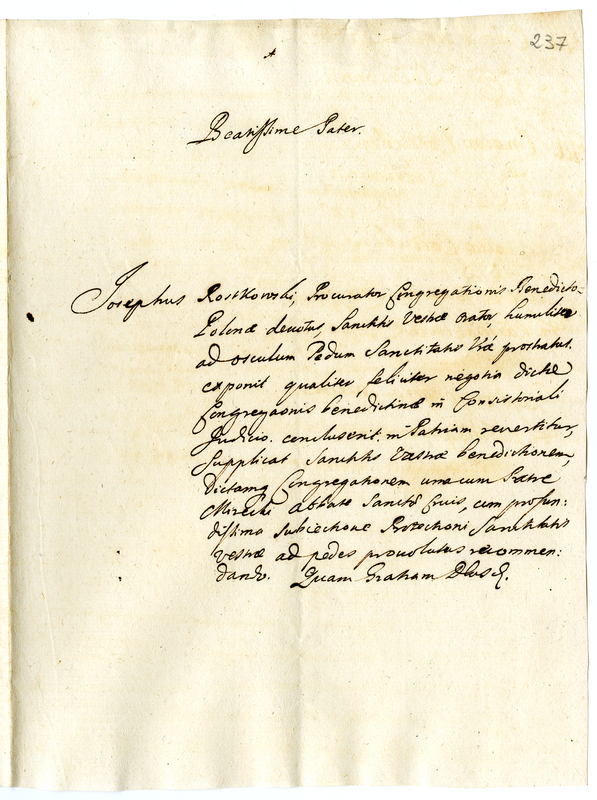 237
Beatissime Pater.
Josephus Rostkowski, Procurator Congregationis Benedicto-
Polonæ devotus Sanchts Vestræ orator, humilitæ
ad osculum Pedum Sanctitatis Vræ prostratus.
exponit qualiter feliciter negotia dictæ
Congregaonis benedictinæ in Consistoriali
Judicio. concluserit. in Patriam revertitur,
Supplicat Sanchts Væstræ benedictionem,
Dictamq Congregationem una cum Patre
Mirecki abbate Sanctæ Crucis, cum profun:
dissima subiectione Protectioni Sanctitatis
Vestræ ad pedes provolutus recommen:
dando. Quam Gratiam